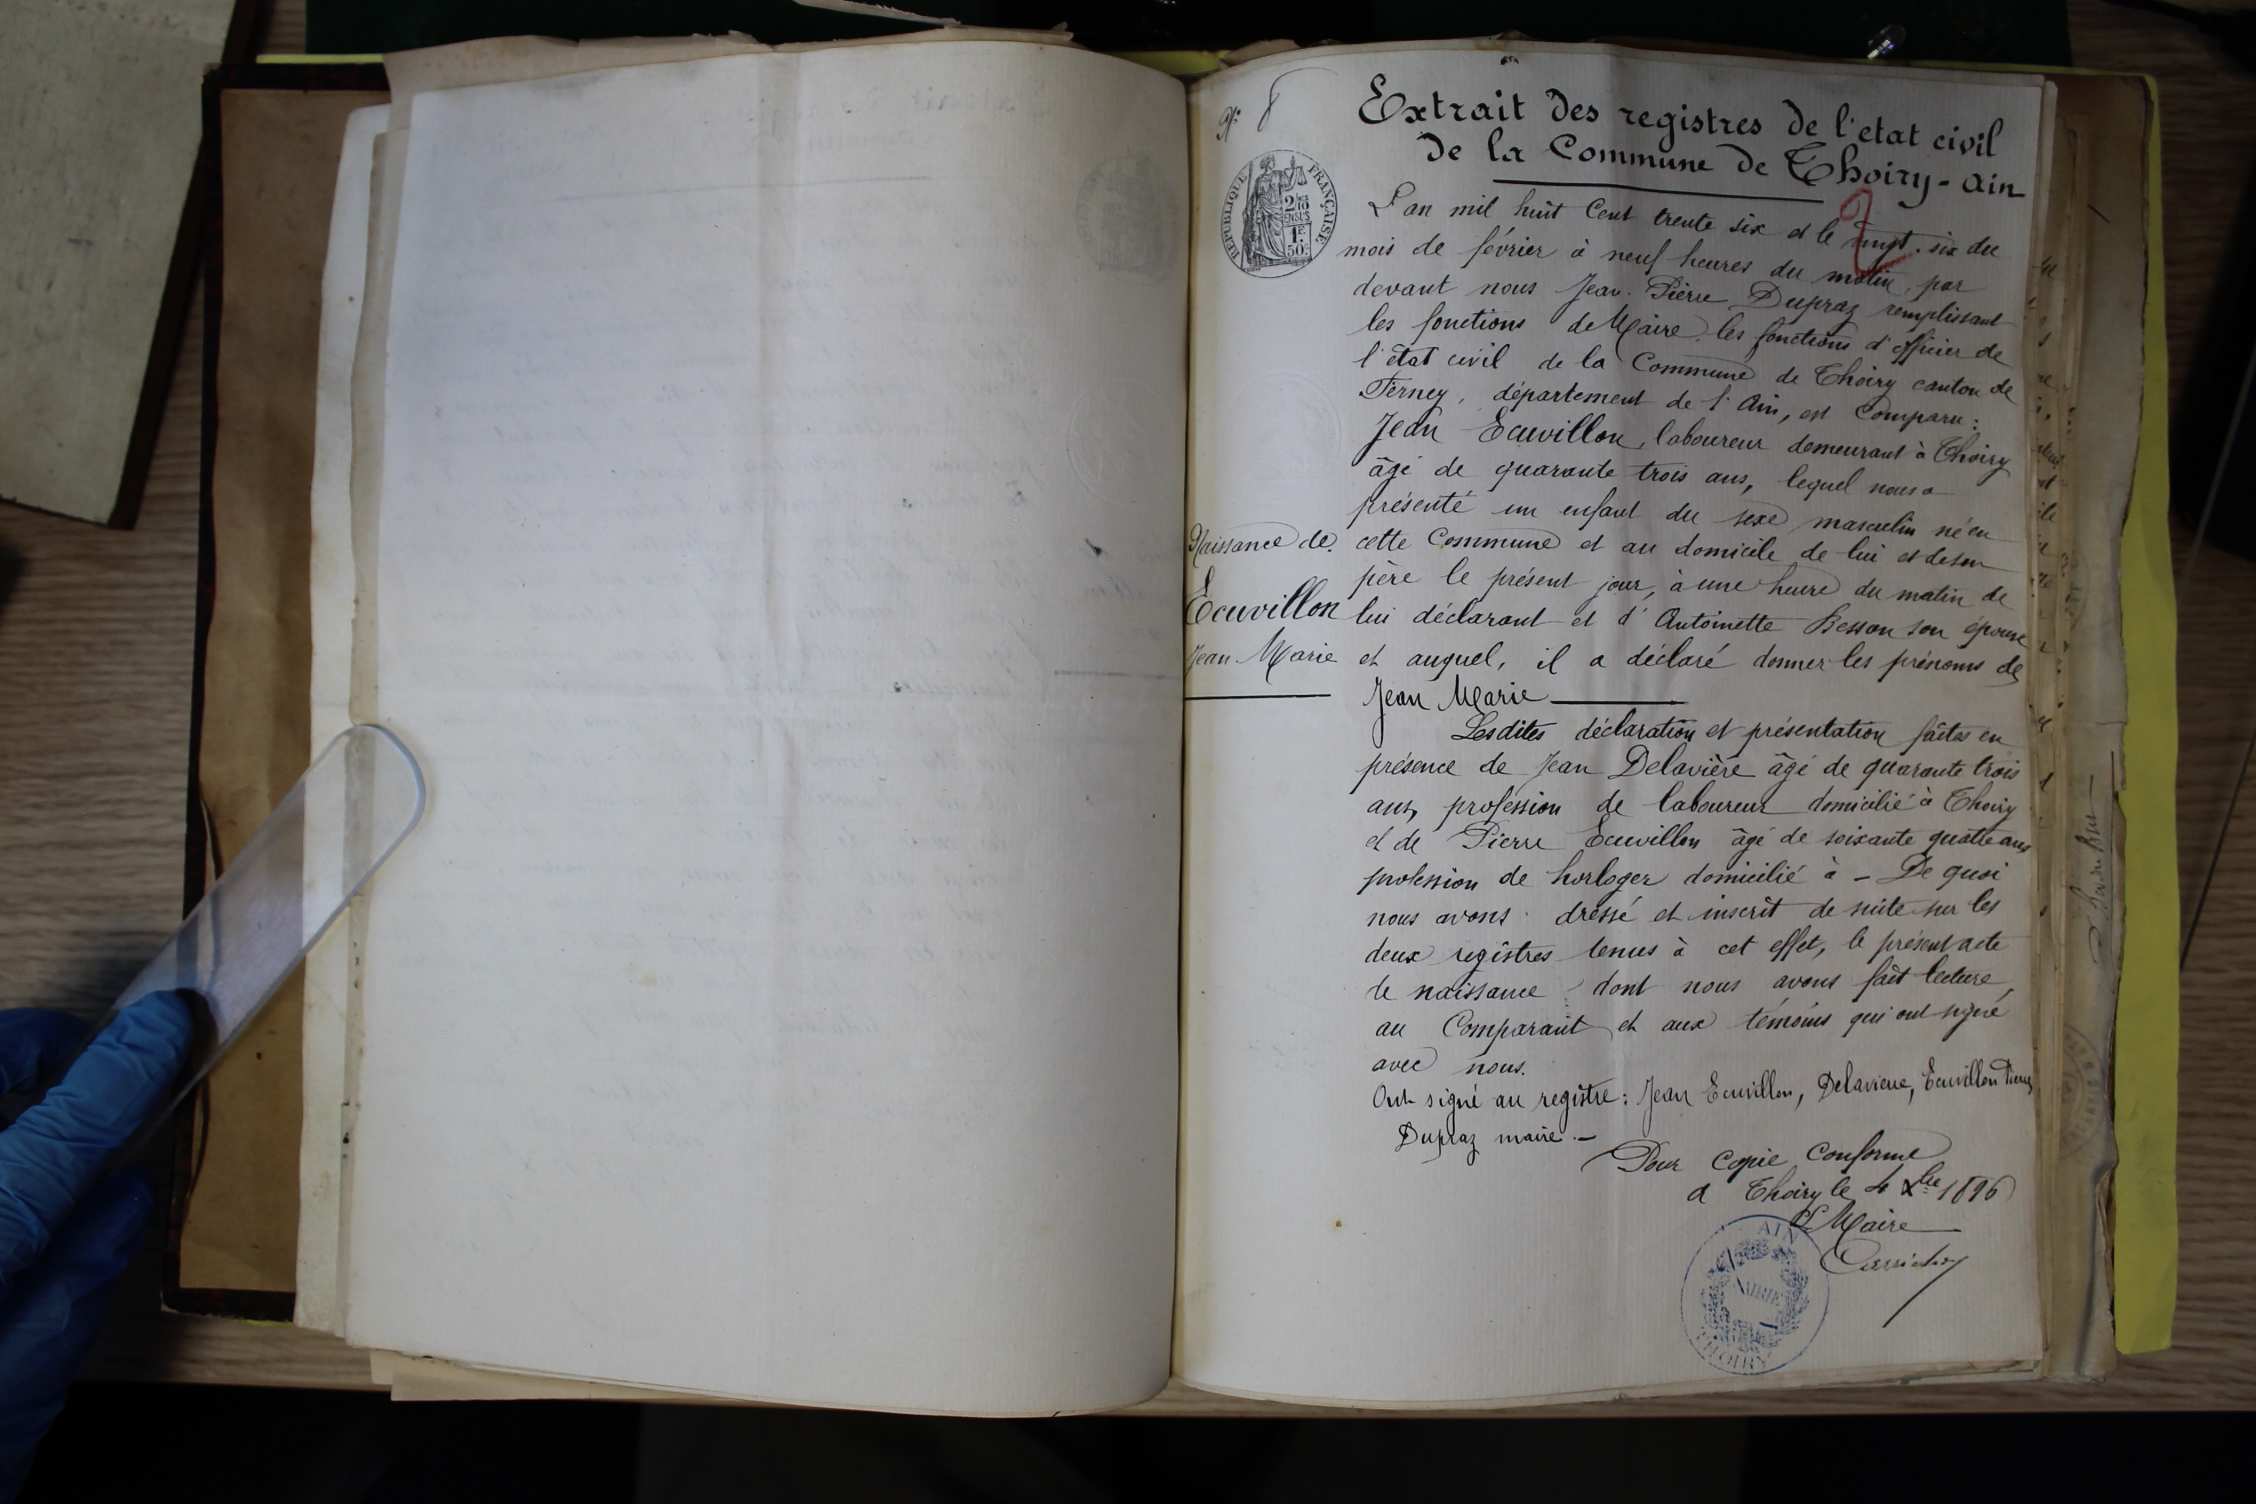 N° 8
Extrait des registres de l'etat civil
de la Commune de Thoiry - Ain
REPUBLIQUE FRANÇAISE
2/10
EN SUS
1F
50c
L'an mil huit Cent trente six et le vingt. six du
mois de février à neuf heures du matin, par
devant nous Jean. Pierre Dupraz remplissant
les fonctions de Maire, les fonctions d'officier de
l'état civil de la Commune de Thoiry canton de
Ferney, département de l'Ain, est Comparu :
Jean Ecuvillon, laboureur demeurant à Thoiry
âgé de quarante trois ans, lequel nous a
présenté un enfant du sexe masculin né en
Naissance de
cette Commune et au domicile de lui et de son
père le présent jour, à une heure du matin de
Ecuvillon
lui déclarant et d'Antoinette Besson son épouse
Jean-Marie
et auquel, il a déclaré donner les prénoms de
Jean Marie
Lesdites déclaration et présentation faîtes en
présence de Jean Delavière âgé de quarante trois
ans, profession de laboureur domicilié à Thoiry
et de Pierre Ecuvillon âgé de soixante quatre ans
profession de horloger domicilié à - De quoi
nous avons dressé et inscrit de suite sur les
deux registres tenus à cet effet, le présent acte
de naissance dont nous avons fait lecture,
au Comparant et aux témoins qui ont signé
avec nous.
Ont signé au registre : Jean Ecuvillon, Delavière, Ecuvillon Pierre,
Dupraz maire. -
Pour Copie Conforme
a Thoiry le 4 Xbre 1896
Le Maire
AIN
MAIRIE
THOIRY